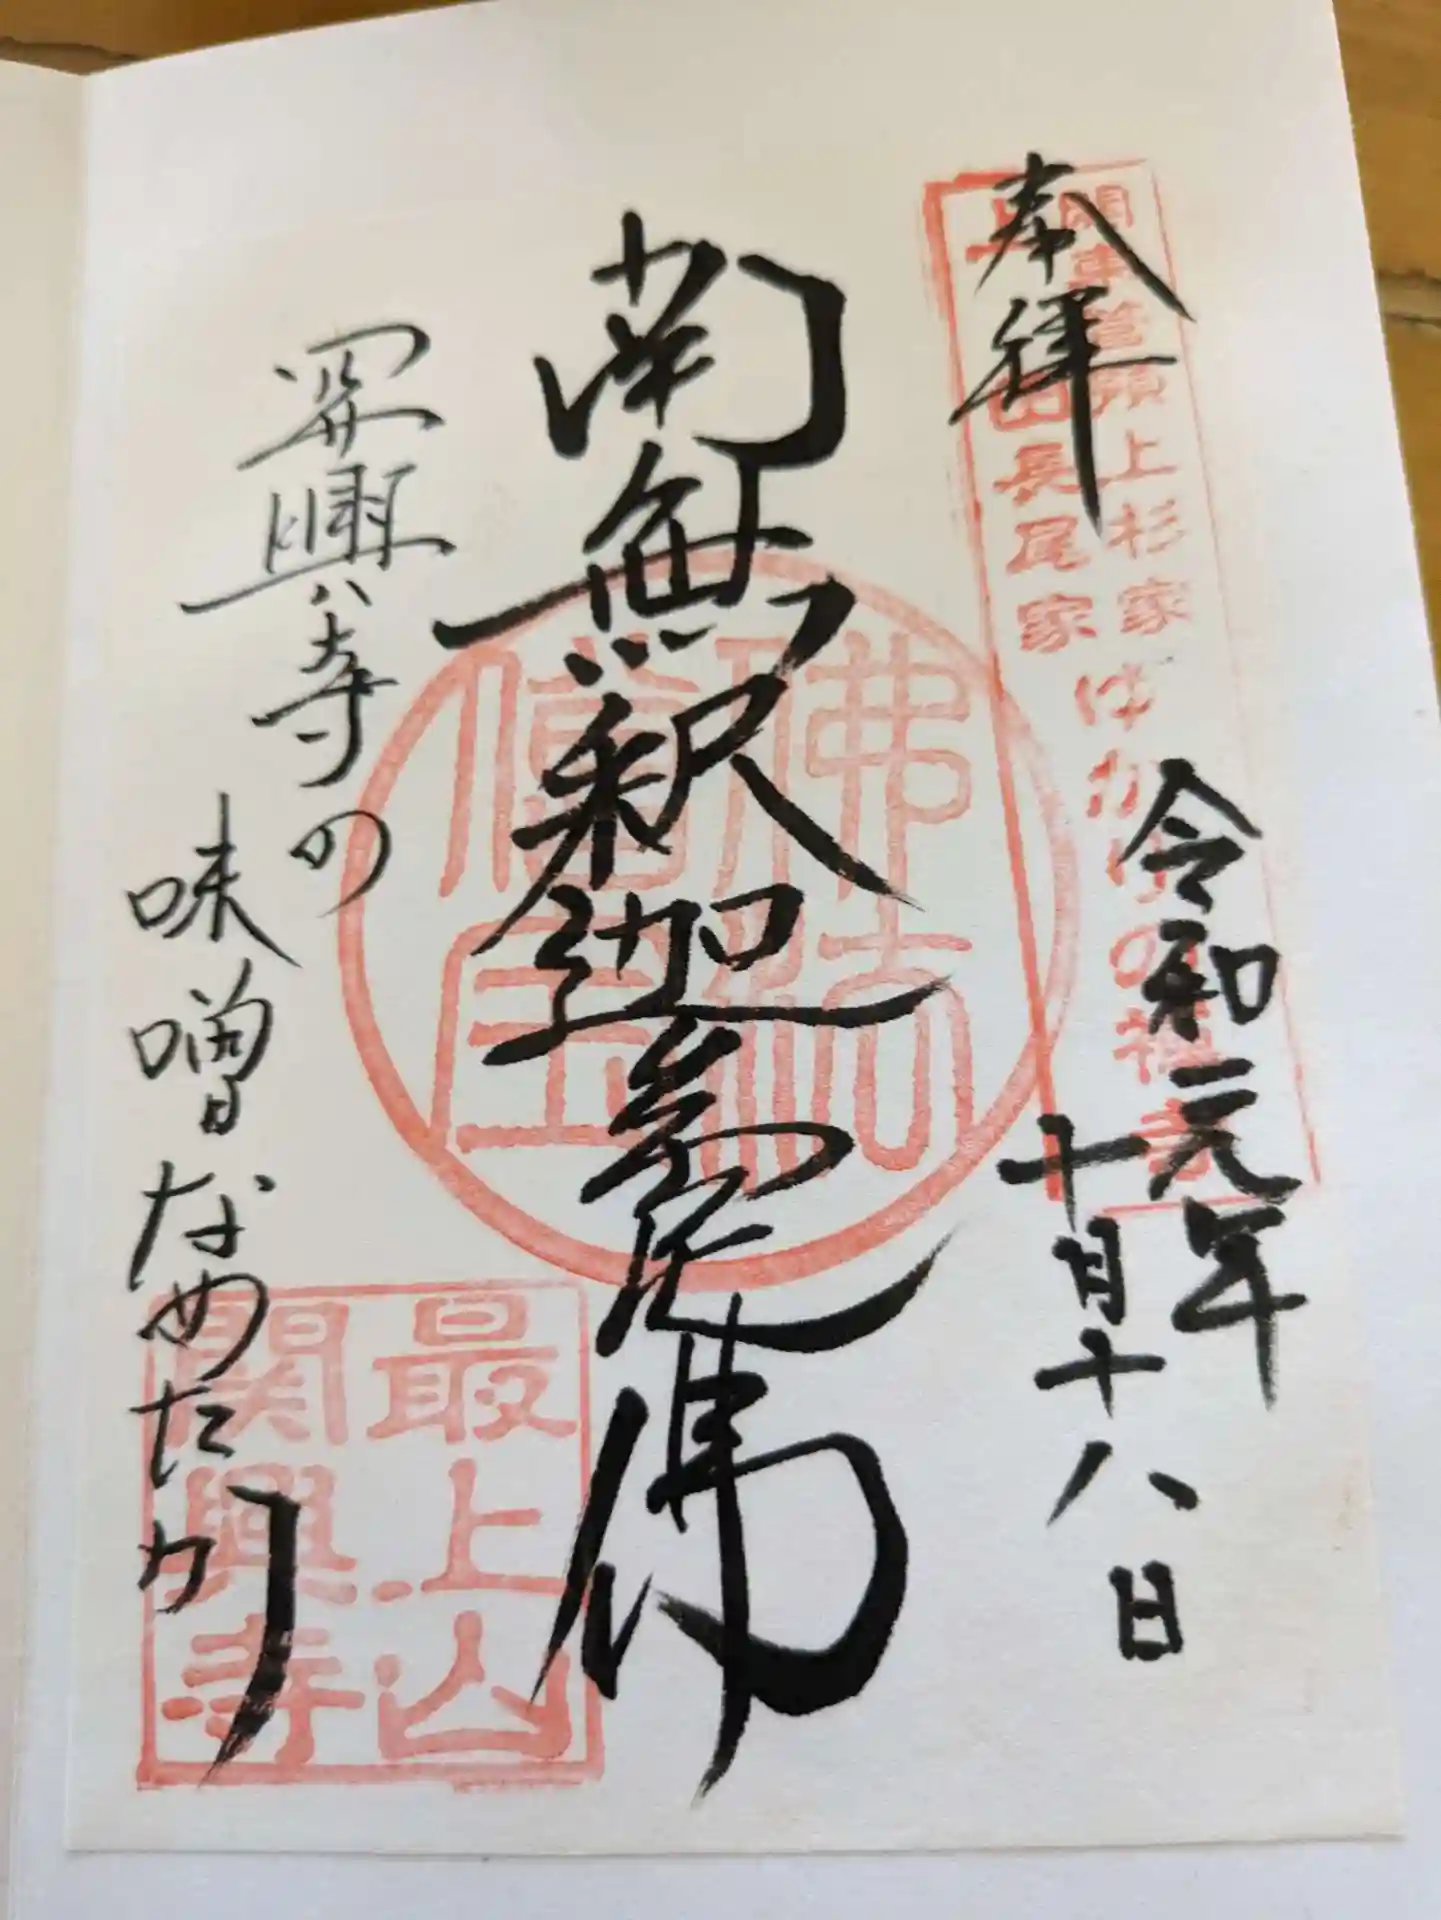 奉拝
関東管領上杉家ゆかりの禅寺
上田長尾家
令和元年
十月十八日
南無釈迦牟尼佛
佛法
僧宝
関興寺の
味噌なめたか
最上山
関興寺